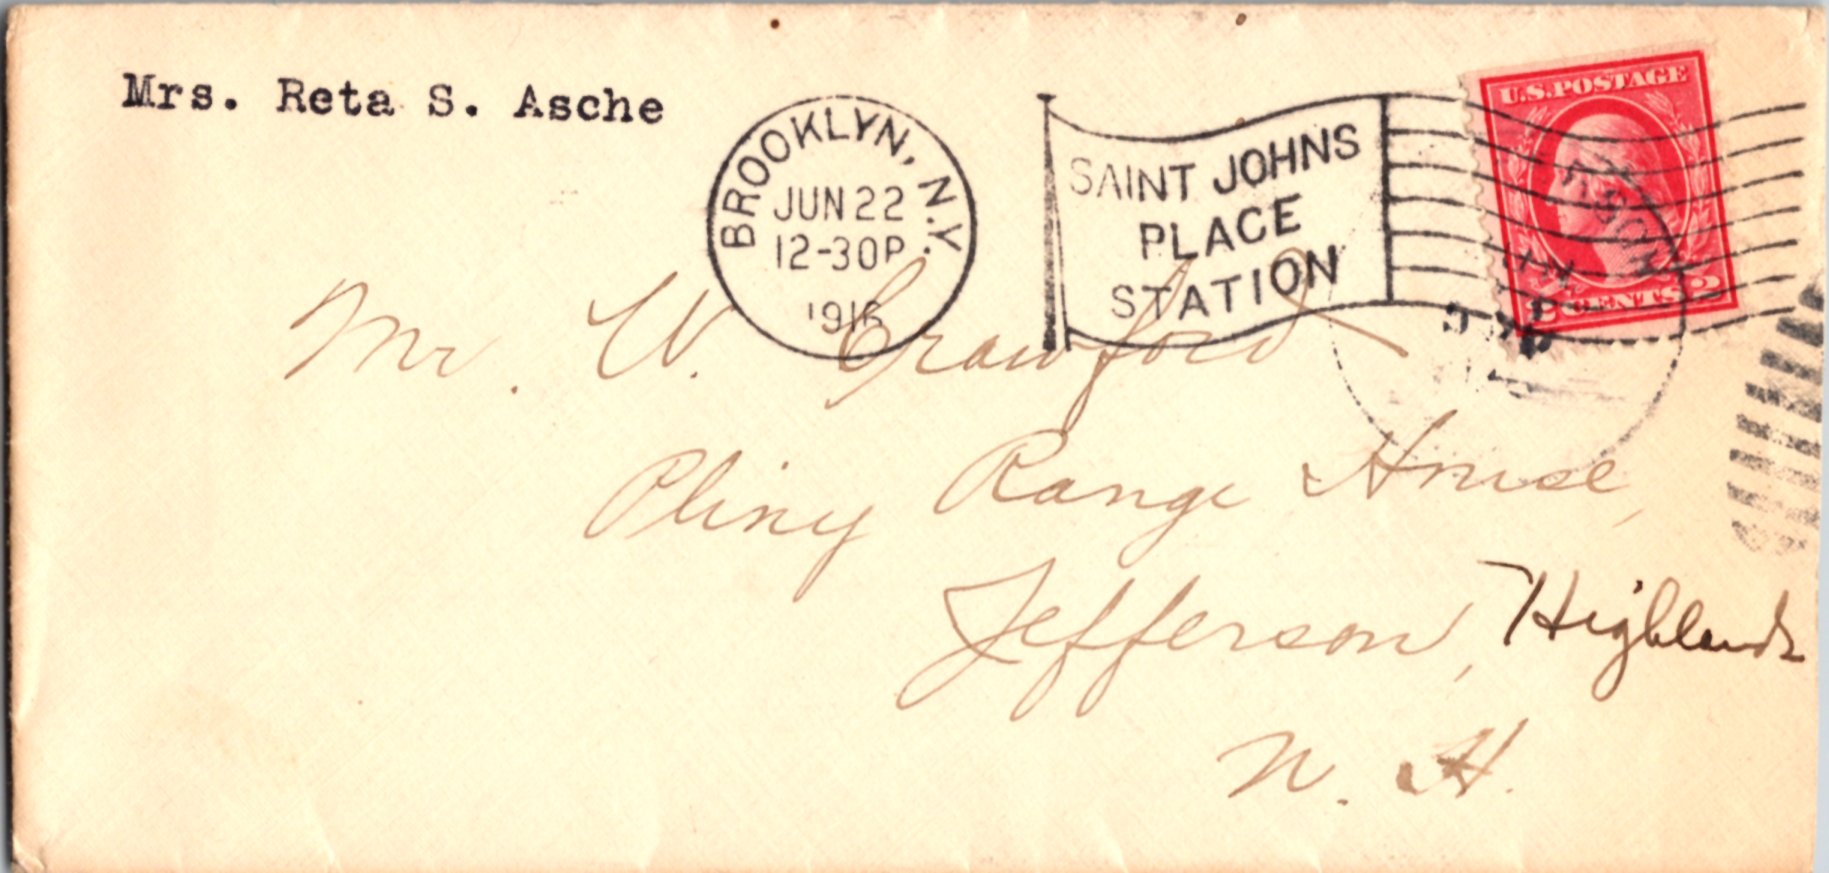 Mrs. Reta S. Asche
BROOKLYN, N.Y.
JUN 22
12-30P
1916
SAINT JOHNS
PLACE
STATION
U.S. POSTAGE
2 CENTS 2
Mr. W. Crawford
Pliny Range House,
Jefferson, Highlands
N. H.